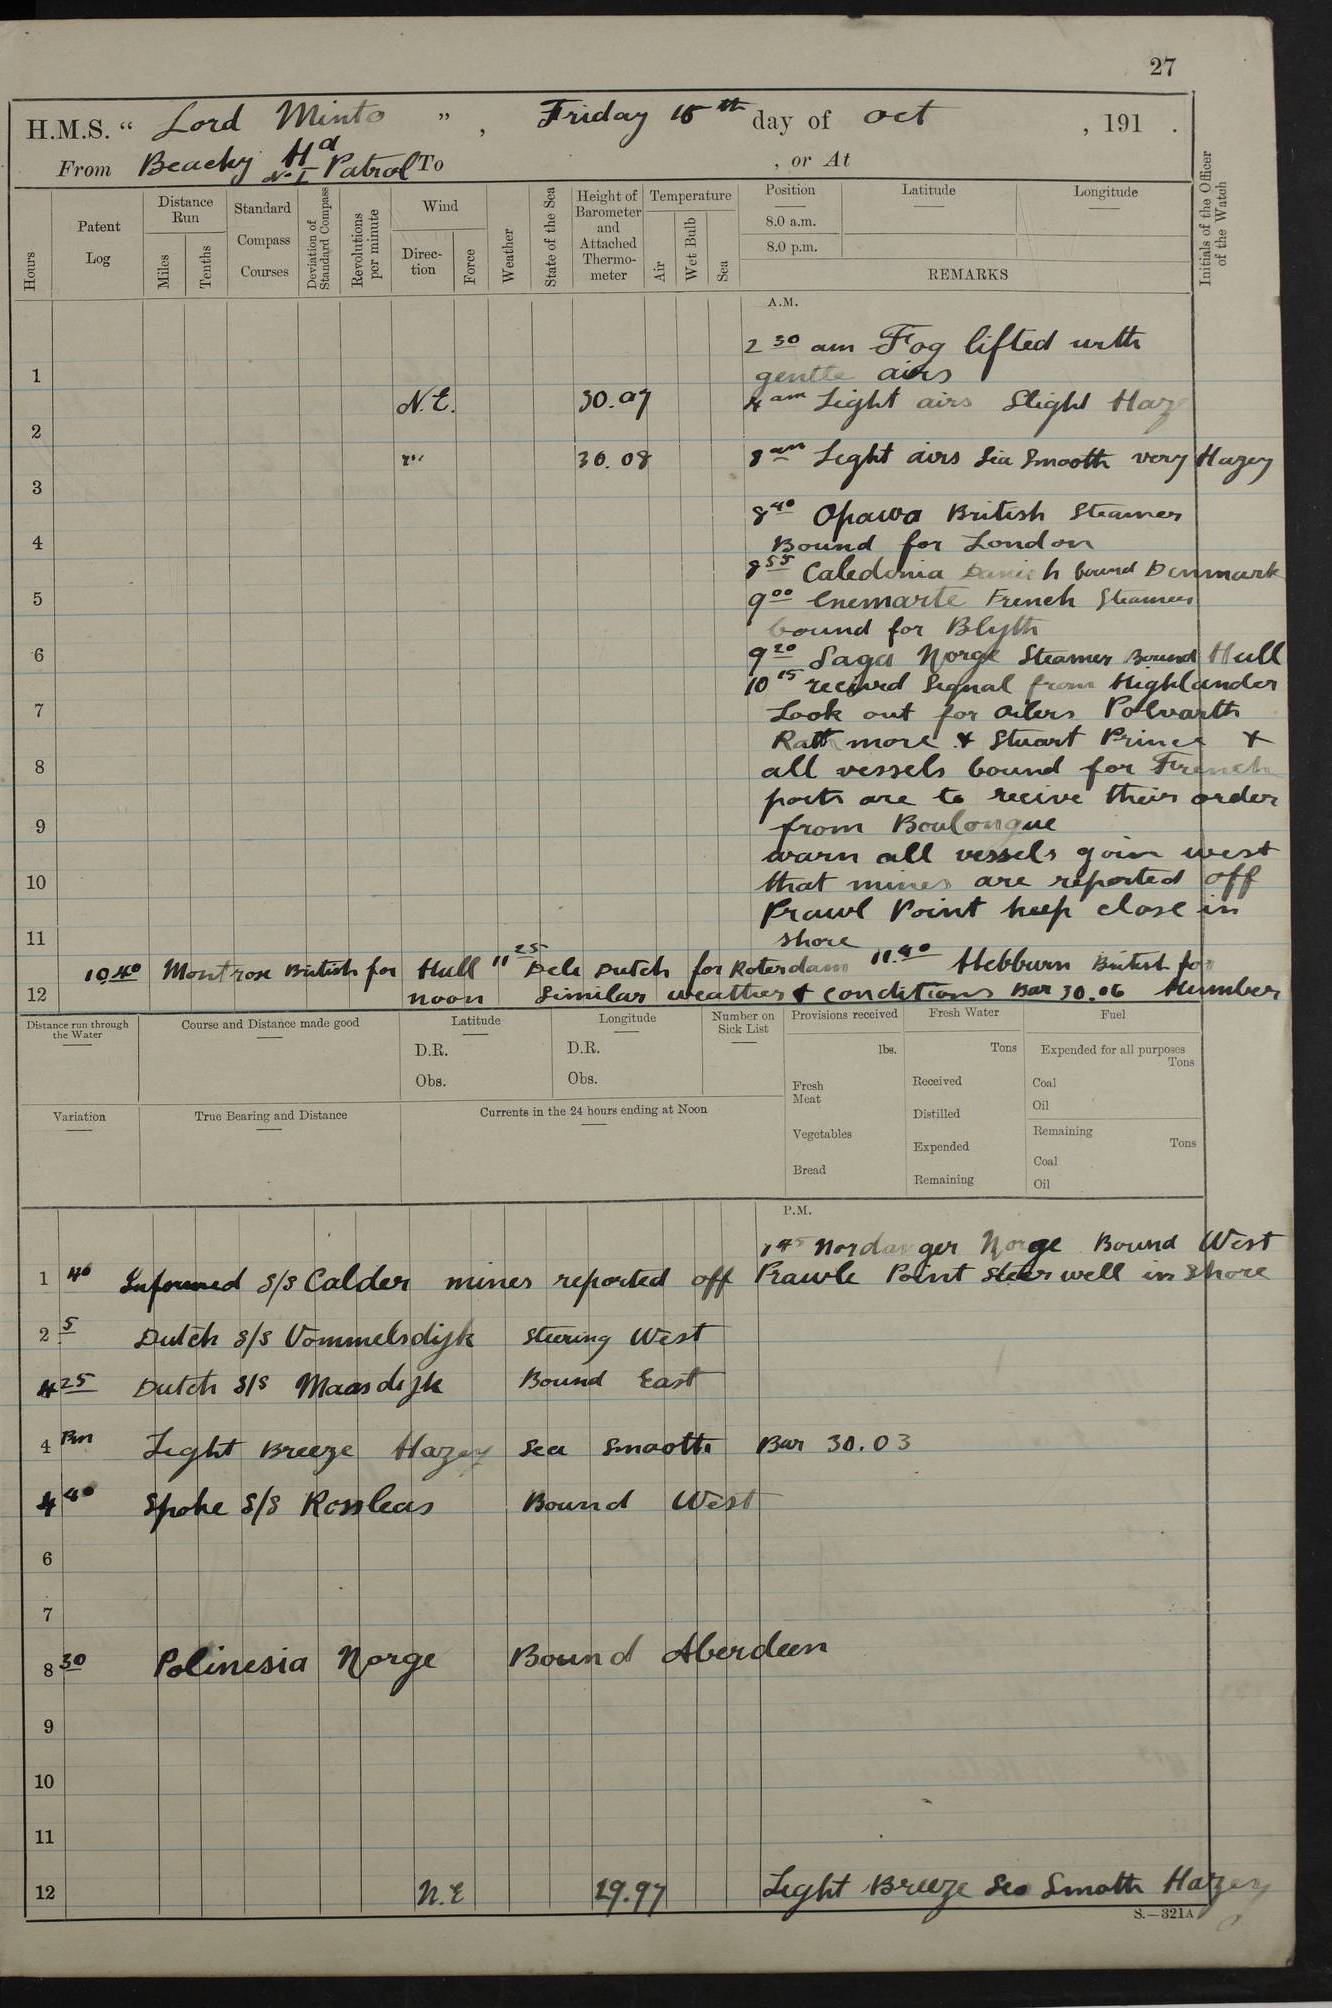 27
H.M.S. “ Lord Minto ” , Friday 15th day of Oct , 191 .
From Beachy Hd No I Patrol To , or At
Hours
Patent Log
Distance Run
Miles
Tenths
Standard Compass Courses
Deviation of Standard Compass
Revolutions per minute
Wind
Direction
Force
Weather
State of the Sea
Height of Barometer and Attached Thermometer
Temperature
Air
Wet Bulb
Sea
Position
Latitude
Longitude
8.0 a.m.
8.0 p.m.
REMARKS
Initials of the Officer of the Watch
A.M.
2 30 am Fog lifted with
1 gentle airs
N.E. 30.07 4 am Light airs Slight Haze
2
" 30.08 8 am Light airs Sea Smooth very Hazey
3
8 40 Opawa British Steamer
4 Bound for London
8 55 Caledonia Danish bound Denmark
5 9 00 Enemarte French Steamer
bound for Blyth
6 9 20 Saga Norge Steamer Bound Hull
10 15 recived Signal from Highlander
7 Look out for oilers Polvarth
Rathmore & Stuart Prince &
8 all vessels bound for French
ports are to recive their order
9 from Boulongue
warn all vessels goin west
10 that mines are reported off
Prawl Point keep close in
11 shore
10.40 Montrose British for Hull 11 25 Deli Dutch for Roterdam 11.40 Hebburn British for
12 noon Similar weather & conditions Bar 30.06 Humber
Distance run through the Water
Course and Distance made good
Latitude
Longitude
Number on Sick List
Provisions received
Fresh Water
Fuel
D.R.
D.R.
lbs.
Tons
Expended for all purposes
Tons
Obs.
Obs.
Fresh Meat
Received
Coal
Variation
True Bearing and Distance
Currents in the 24 hours ending at Noon
Distilled
Oil
Vegetables
Expended
Remaining
Tons
Bread
Coal
Remaining
Oil
P.M.
1 45 Nordanger Norge Bound West
1 40 Informed S/S Calder mines reported off Prawle Point Steer well in Shore
2 5 Dutch S/S Vommelsdijk steering West
4 25 Dutch S/S Maasdijk Bound East
4 Pm Light Breeze Hazey Sea Smooth Bar 30.03
4 40 Spoke S/S Rossleas Bound West
6
7
8 30 Polinesia Norge Bound Aberdeen
9
10
11
12 N.E 29.97 Light Breeze Sea Smoth Hazey
S.—321A